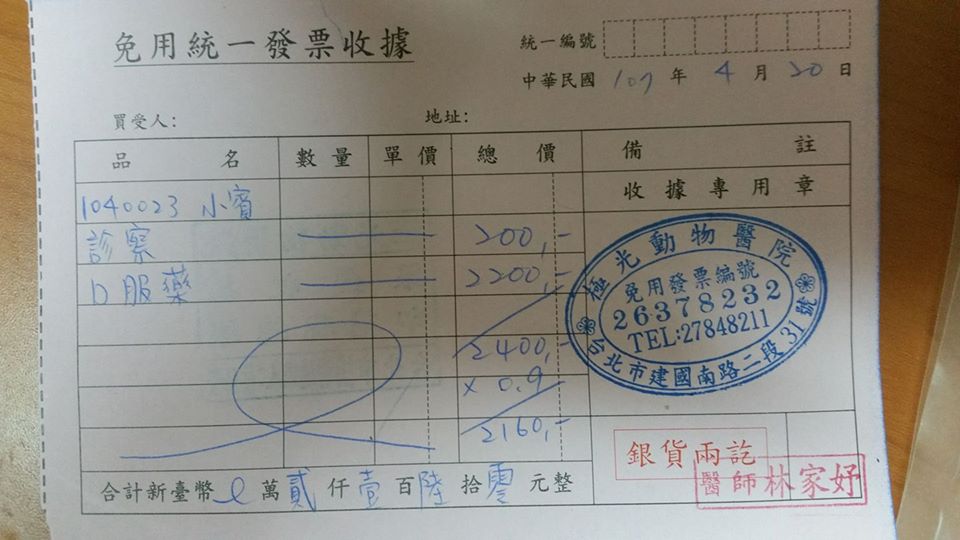 免用統一發票收據
統一編號
中華民國 107 年 4 月 20 日
買受人： 地址：
品名 數量 單價 總價 備註
收據專用章
1040023 小賓
診察 200,-
口服藥 2200,-
2400,-
x 0.9
2160,-
極光動物醫院
免用發票編號
26378232
TEL:27848211
台北市建國南路二段31號
銀貨兩訖
醫師林家妤
合計新臺幣 0 萬 貳 仟 壹 百 陸 拾 零 元整